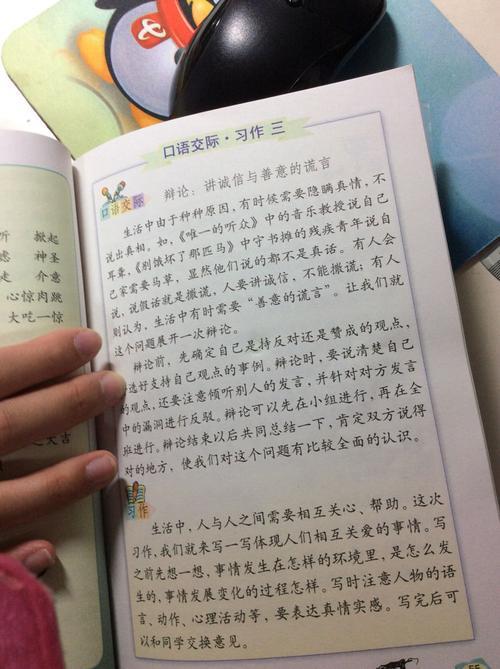 听 掀起
惑 神圣
走 介意
心惊肉跳
大吃一惊
之大吉
口语交际·习作 三
口语交际
辩论：讲诚信与善意的谎言
生活中由于种种原因，有时候需要隐瞒真情，不
说出真相。如，《唯一的听众》中的音乐教授说自己
耳聋，《别饿坏了那匹马》中守书摊的残疾青年说自
己家需要马草，显然他们说的都不是真话。有人会
说，说假话就是撒谎，人要讲诚信，不能撒谎；有人
则认为，生活中有时需要“善意的谎言”。让我们就
这个问题展开一次辩论。
辩论前，先确定自己是持反对还是赞成的观点，
选好支持自己观点的事例。辩论时，要说清楚自己
的观点，还要注意倾听别人的发言，并针对对方发言
中的漏洞进行反驳。辩论可以先在小组进行，再在全
班进行。辩论结束以后共同总结一下，肯定双方说得
对的地方，使我们对这个问题有比较全面的认识。
习作
生活中，人与人之间需要相互关心、帮助。这次
习作，我们就来写一写体现人们相互关爱的事情。写
之前先想一想，事情发生在怎样的环境里，是怎么发
生的，事情发展变化的过程怎样。写时注意人物的语
言、动作、心理活动等，要表达真情实感。写完后可
以和同学交换意见。
55